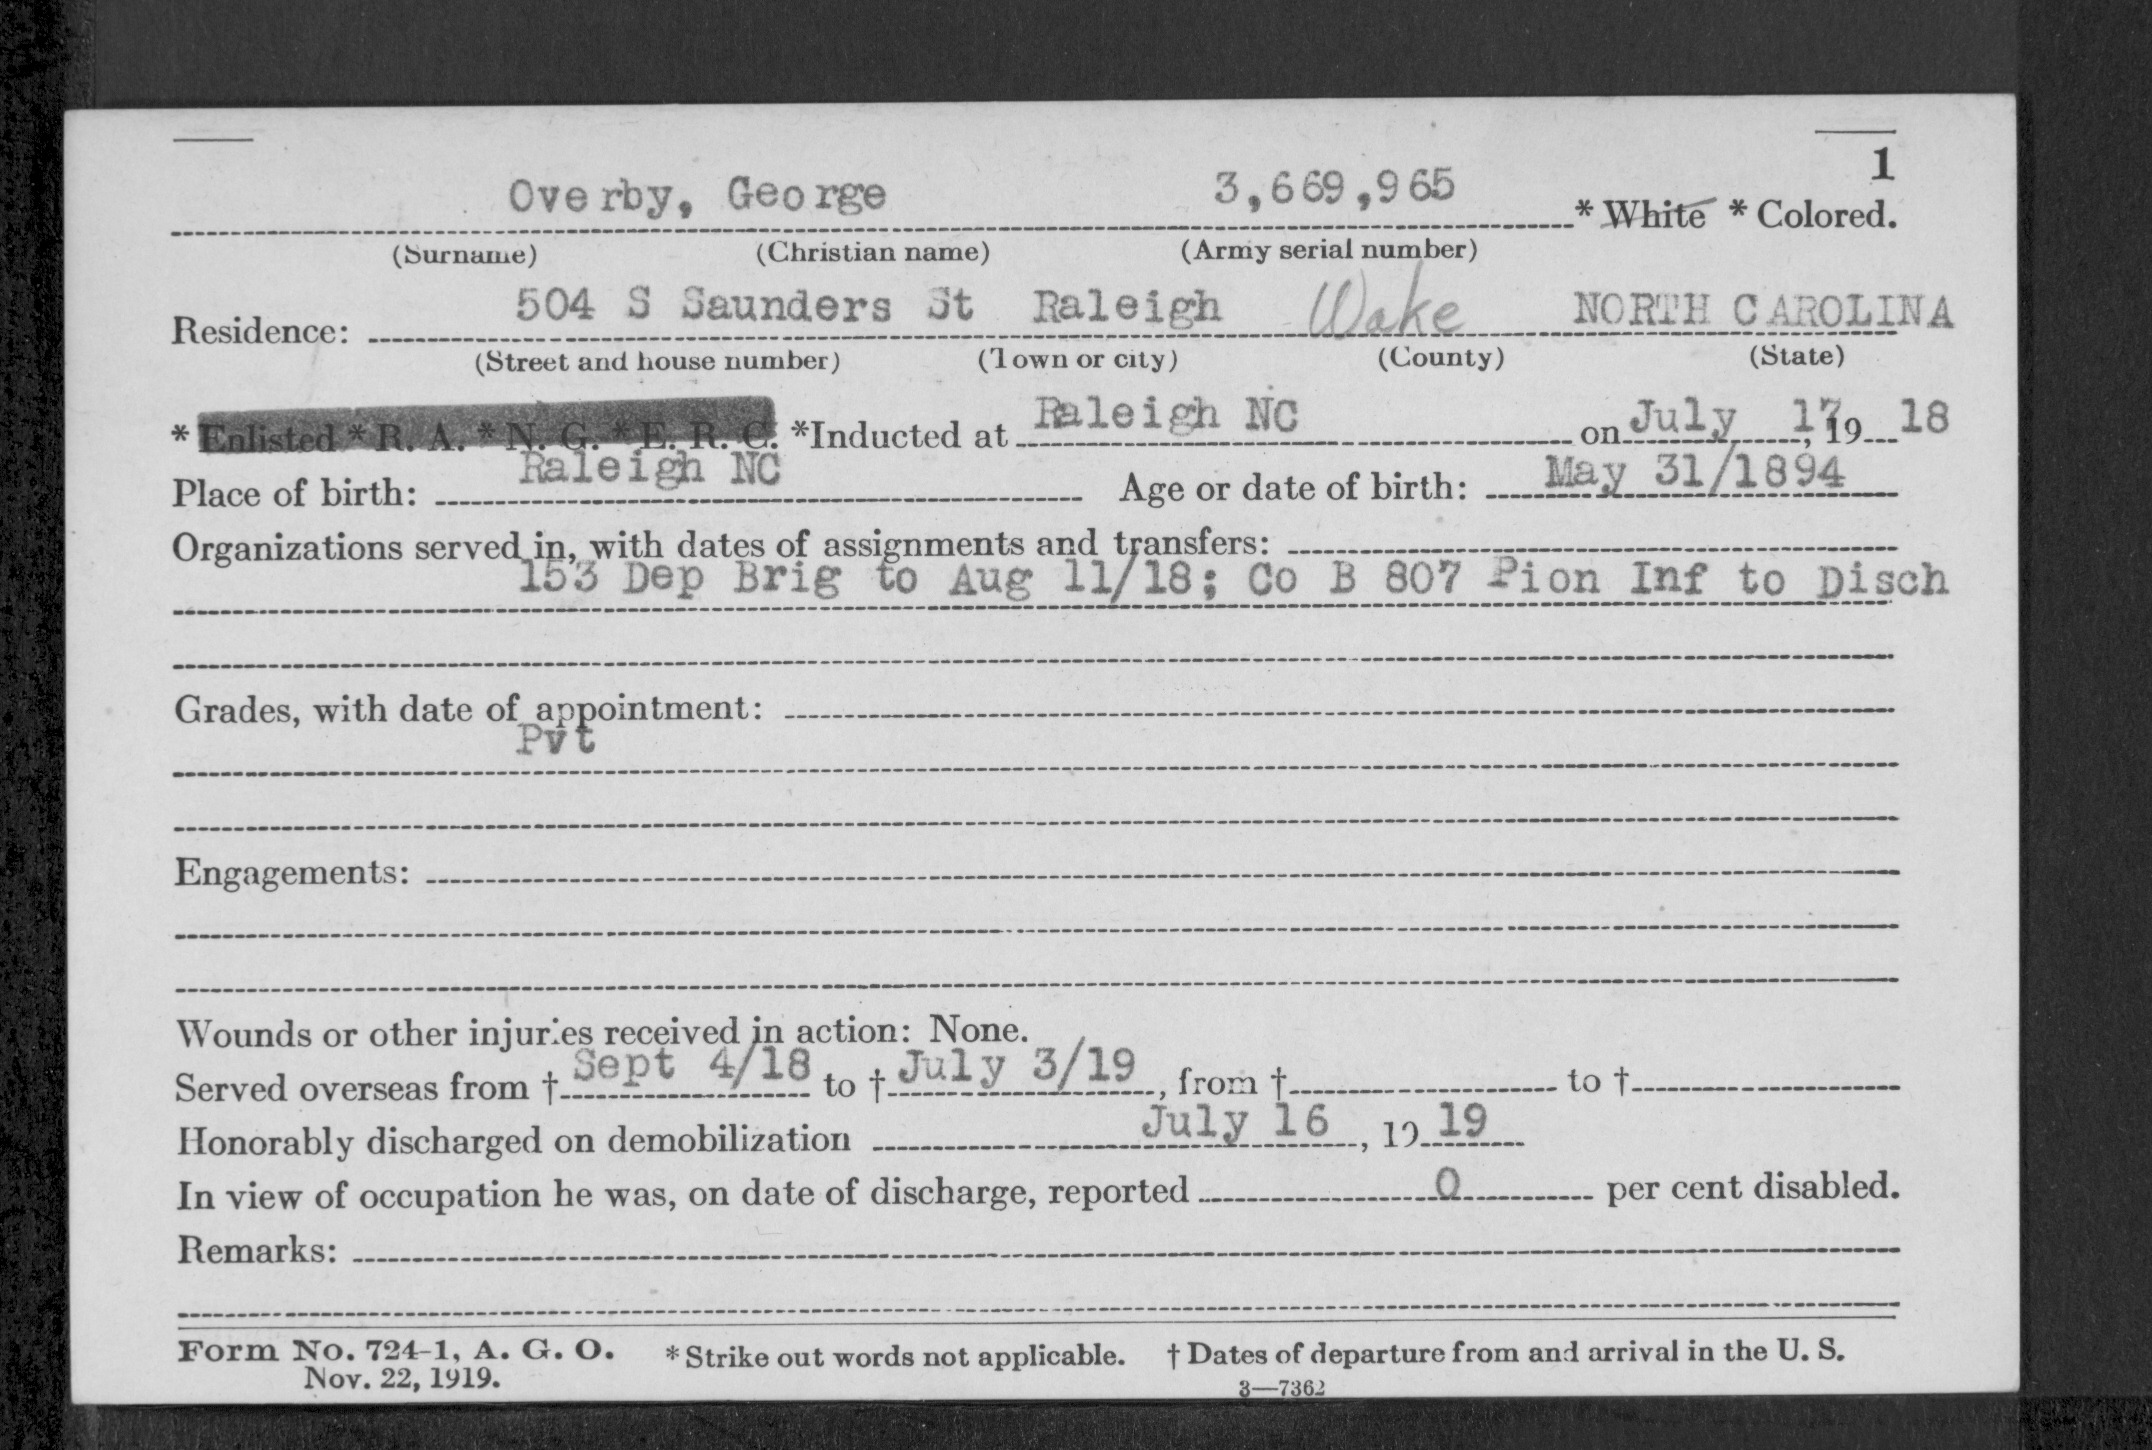 1
Overby, George 3,669,965 * White * Colored.
(Surname) (Christian name) (Army serial number)
Residence: 504 S Saunders St Raleigh Wake NORTH CAROLINA
(Street and house number) (Town or city) (County) (State)
* Enlisted * R. A. * N. G. * E. R. C. *Inducted at Raleigh NC on July 17, 19 18
Place of birth: Raleigh NC Age or date of birth: May 31/1894
Organizations served in, with dates of assignments and transfers:
153 Dep Brig to Aug 11/18; Co B 807 Pion Inf to Disch
Grades, with date of appointment:
Pvt
Engagements:
Wounds or other injuries received in action: None.
Served overseas from † Sept 4/18 to † July 3/19, from † to †
Honorably discharged on demobilization July 16, 19 19
In view of occupation he was, on date of discharge, reported 0 per cent disabled.
Remarks:
Form No. 724-1, A. G. O. * Strike out words not applicable. † Dates of departure from and arrival in the U. S.
Nov. 22, 1919. 3—7362